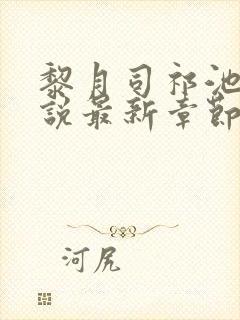 黎月司祁池
說最新章節
河尻